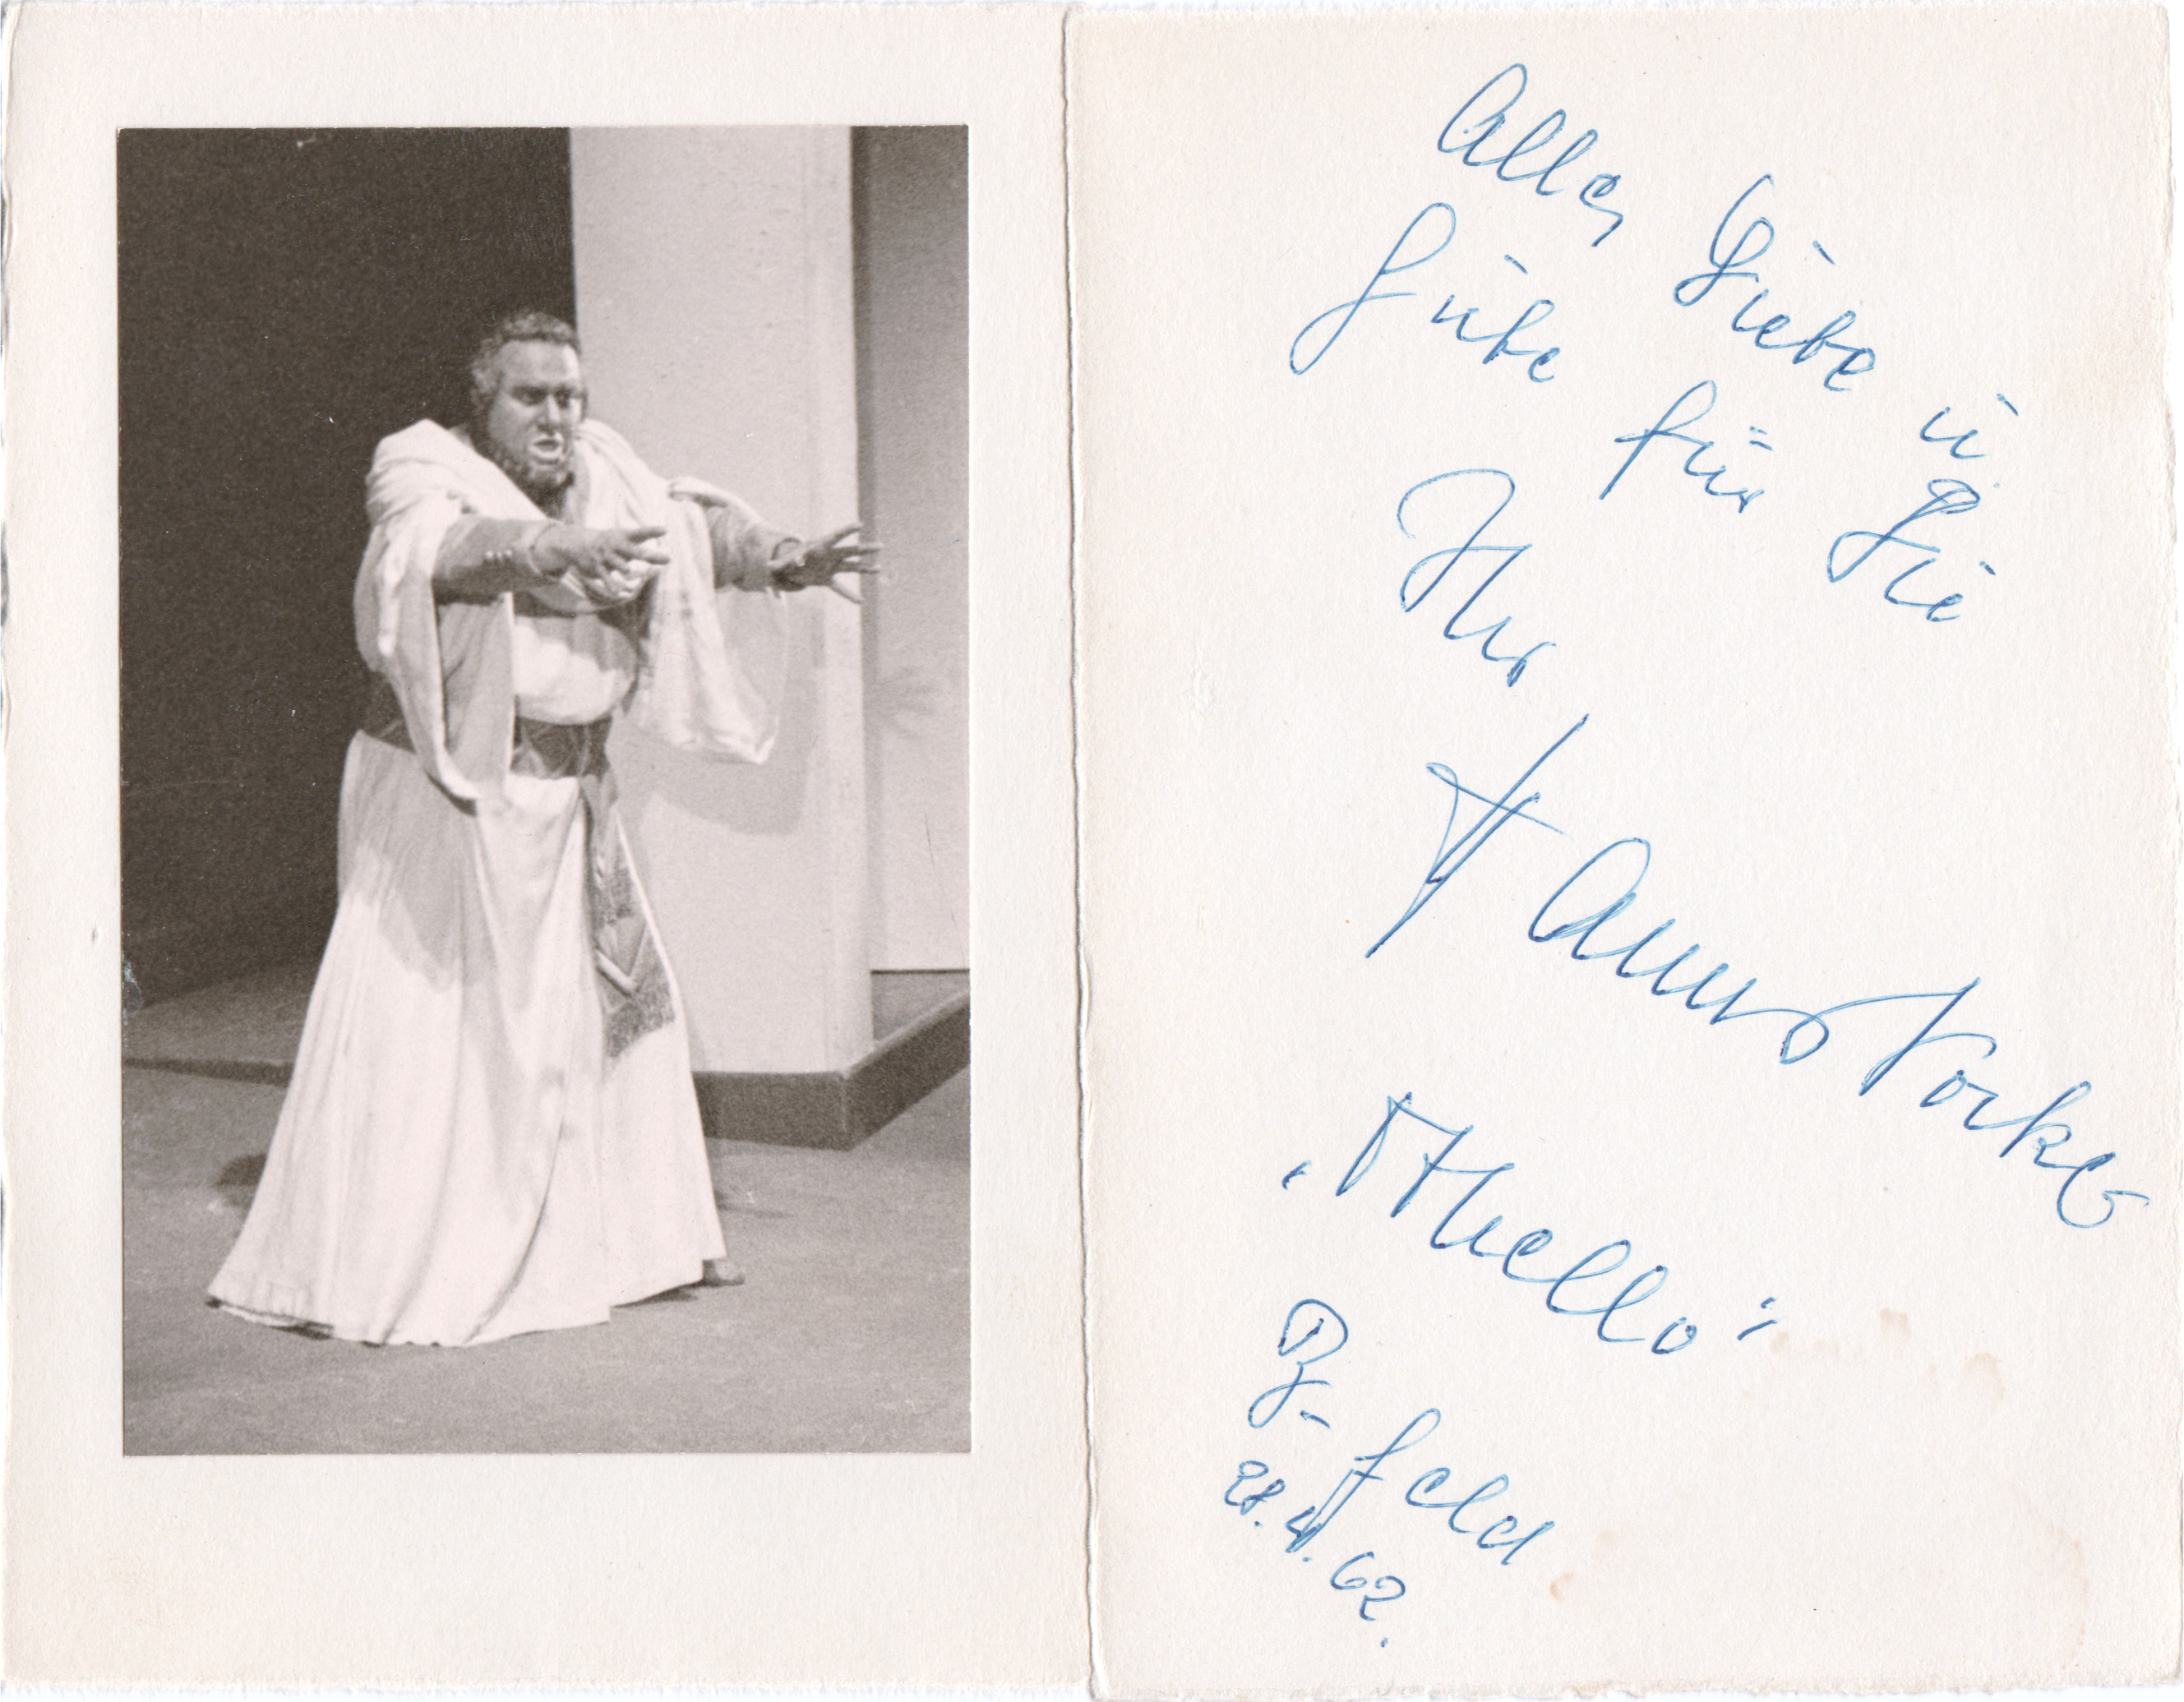 Alles Liebe u.
Gute für Sie
Ihr
Hanns Nocker
"Othello"
B-feld
28.4.62.